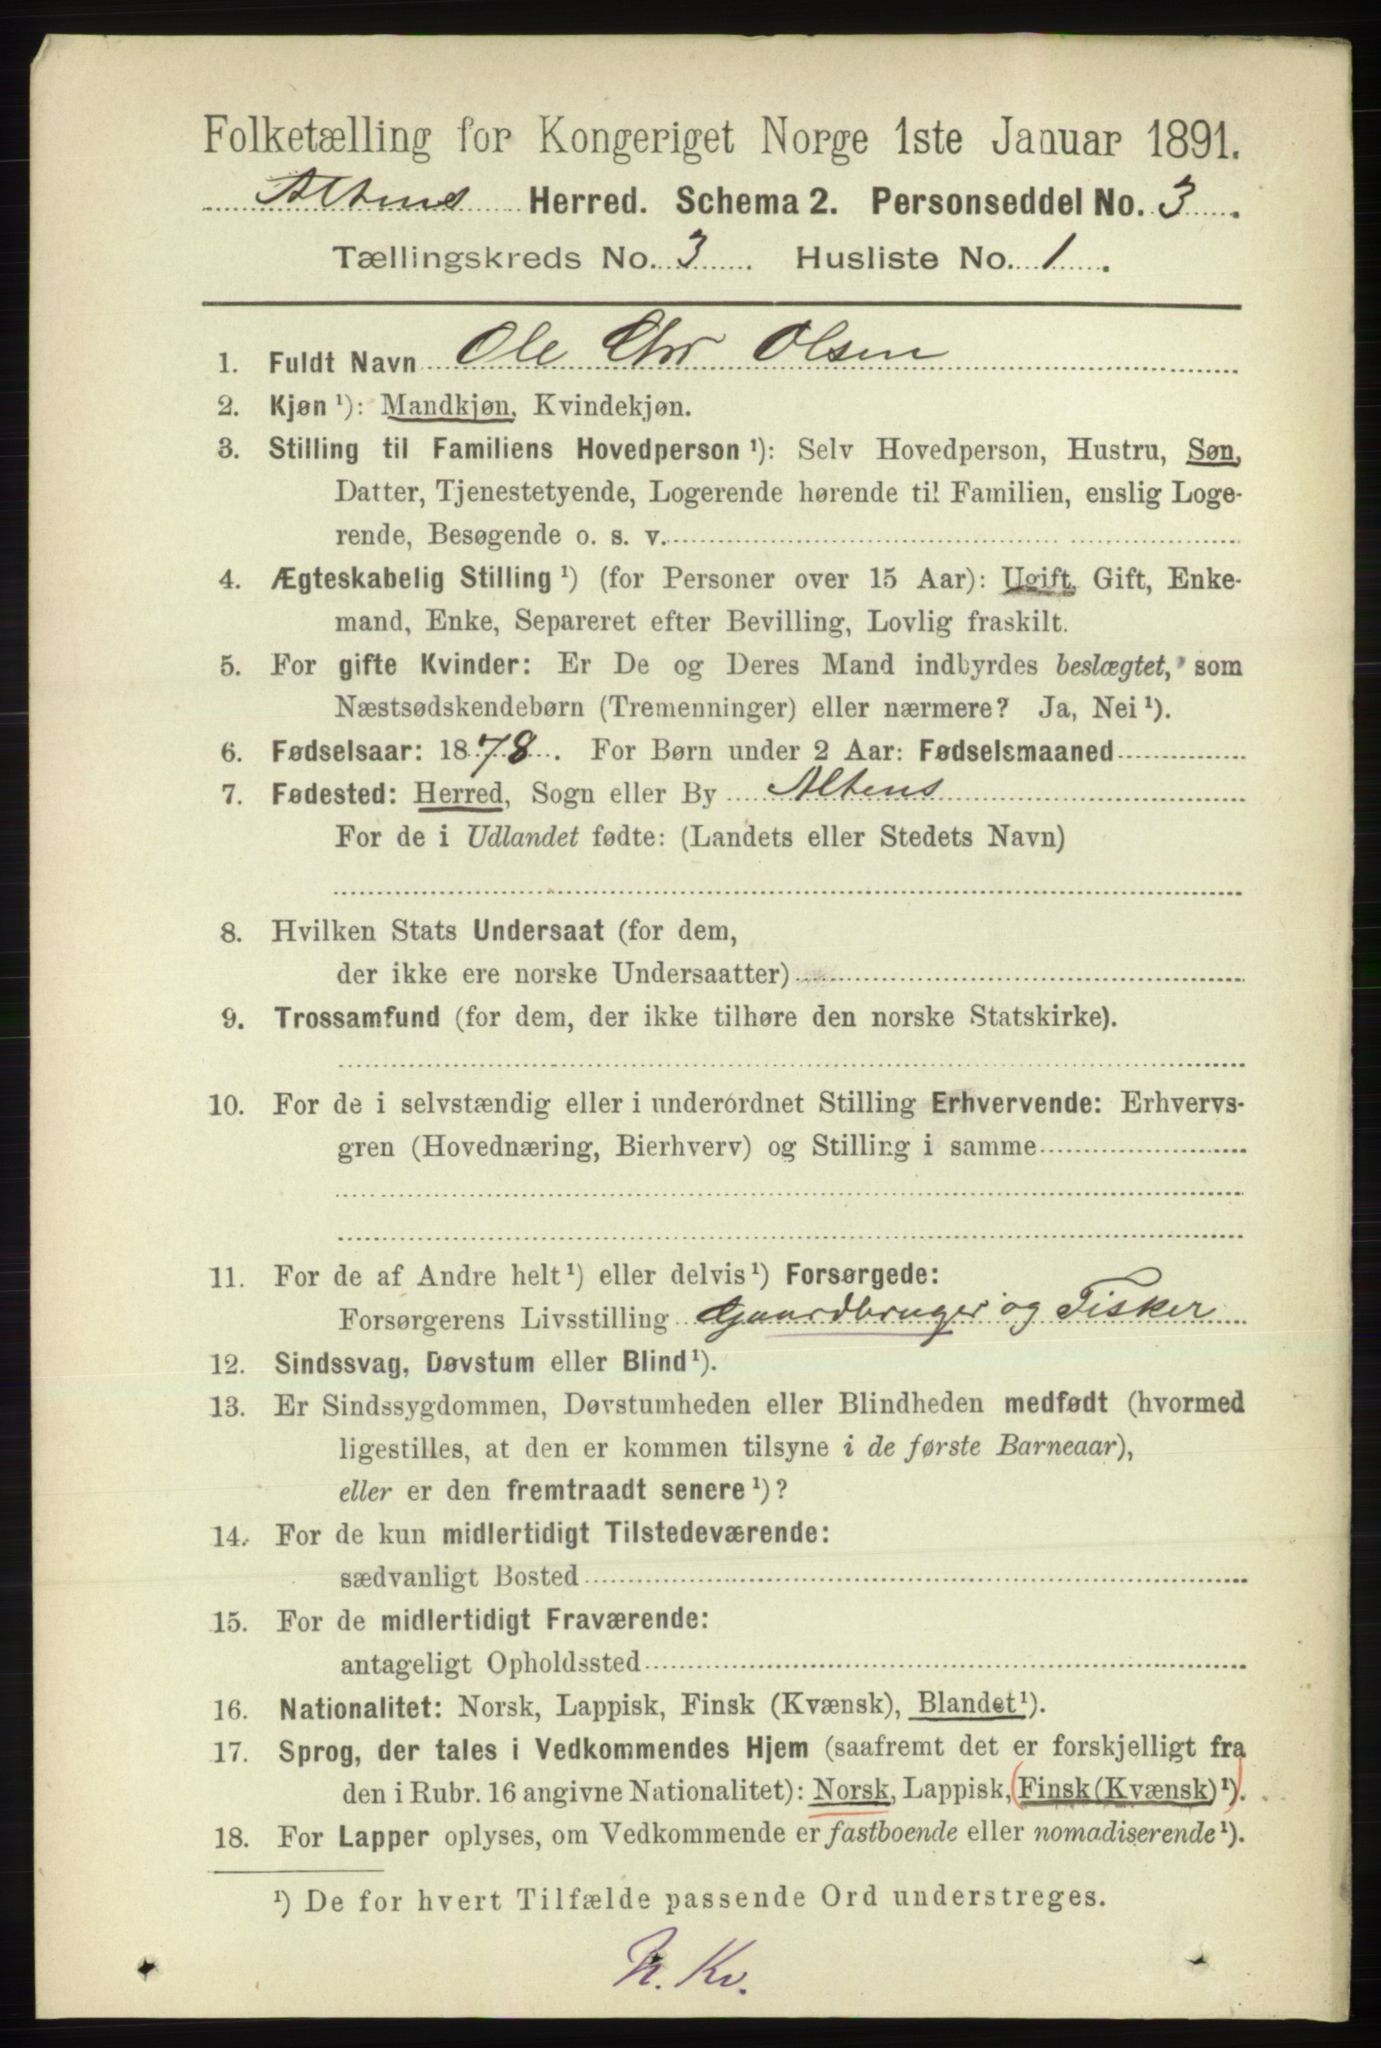 Folketælling for Kongeriget Norge 1ste Januar 1891.
Altens Herred. Schema 2. Personseddel No. 3.
Tællingskreds No. 3. Husliste No. 1.
1. Fuldt Navn Ole Chr Olsen
2. Kjøn ¹): Mandkjøn, Kvindekjøn.
3. Stilling til Familiens Hovedperson ¹): Selv Hovedperson, Hustru, Søn,
Datter, Tjenestetyende, Logerende hørende til Familien, enslig Loge-
rende, Besøgende o. s. v.
4. Ægteskabelig Stilling ¹) (for Personer over 15 Aar): Ugift, Gift, Enke-
mand, Enke, Separeret efter Bevilling, Lovlig fraskilt.
5. For gifte Kvinder: Er De og Deres Mand indbyrdes beslægtet, som
Næstsødskendebørn (Tremenninger) eller nærmere? Ja, Nei ¹).
6. Fødselsaar: 1878. For Børn under 2 Aar: Fødselsmaaned
7. Fødested: Herred, Sogn eller By Altens
For de i Udlandet fødte: (Landets eller Stedets Navn)
8. Hvilken Stats Undersaat (for dem,
der ikke ere norske Undersaatter)
9. Trossamfund (for dem, der ikke tilhøre den norske Statskirke).
10. For de i selvstændig eller i underordnet Stilling Erhvervende: Erhvervs-
gren (Hovednæring, Bierhverv) og Stilling i samme
11. For de af Andre helt ¹) eller delvis ¹) Forsørgede:
Forsørgerens Livsstilling Gaardbruger og Fisker
12. Sindssvag, Døvstum eller Blind ¹).
13. Er Sindssygdommen, Døvstumheden eller Blindheden medfødt (hvormed
ligestilles, at den er kommen tilsyne i de første Barneaar),
eller er den fremtraadt senere ¹)?
14. For de kun midlertidigt Tilstedeværende:
sædvanligt Bosted
15. For de midlertidigt Fraværende:
antageligt Opholdssted
16. Nationalitet: Norsk, Lappisk, Finsk (Kvænsk), Blandet ¹).
17. Sprog, der tales i Vedkommendes Hjem (saafremt det er forskjelligt fra
den i Rubr. 16 angivne Nationalitet): Norsk, Lappisk, (Finsk (Kvænsk) ¹)).
18. For Lapper oplyses, om Vedkommende er fastboende eller nomadiserende ¹).
¹) De for hvert Tilfælde passende Ord understreges.
N. Kv.